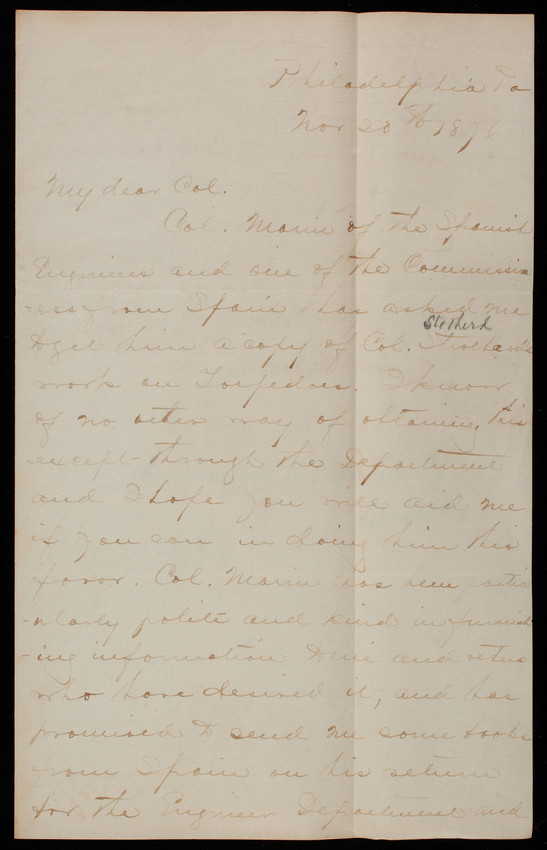 Philadelphia Pa
Nov 20th 1876
My dear Col.
Col. Marin of the Spanish
Engineers and one of the Commissin
-ers from Spain has asked me
to get him a copy of Col. Strothard's
Stotherd
work on Torpedoes. I know
of no other way of obtaining this
except through the Department
and I hope you will aid me
if you can in doing him this
favor. Col. Marin has been partic
-ularly polite and kind in furnish
-ing information to me and others
who have desired it, and has
promised to send me some books
from Spain on his return
for the Engineer Department and